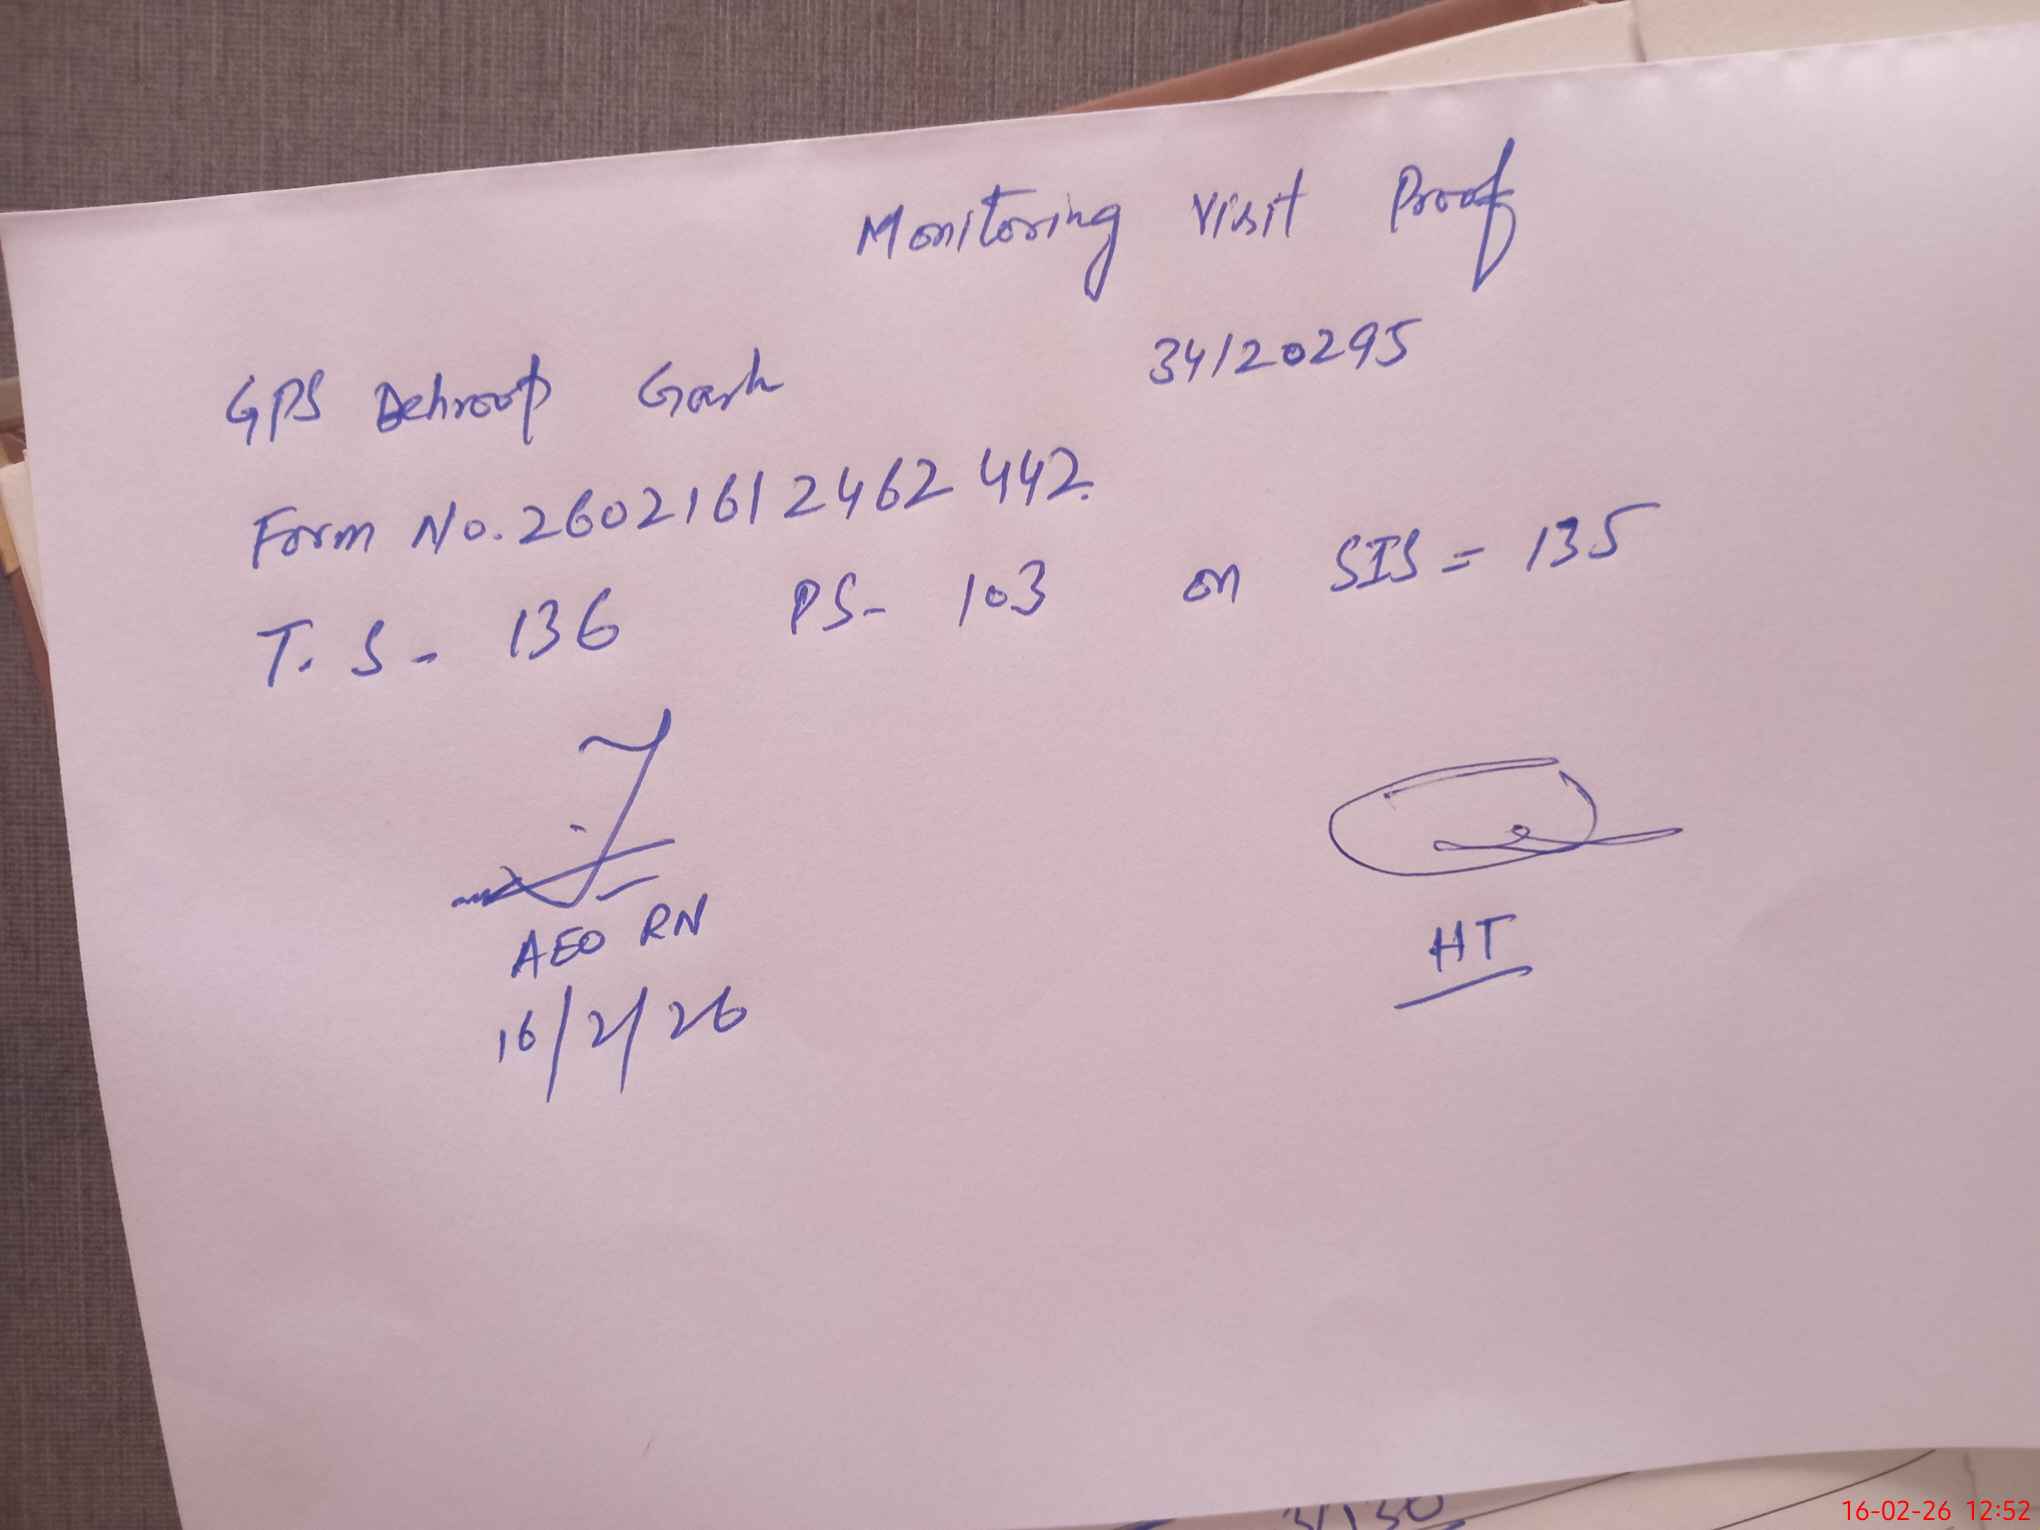 Monitoring Visit Proof
GPS Dehroop Garh 34120295
Form No. 26021612462442.
T. S - 136 PS - 103 on SIS = 135
AEO RN
16/2/26
HT
16-02-26 12:52